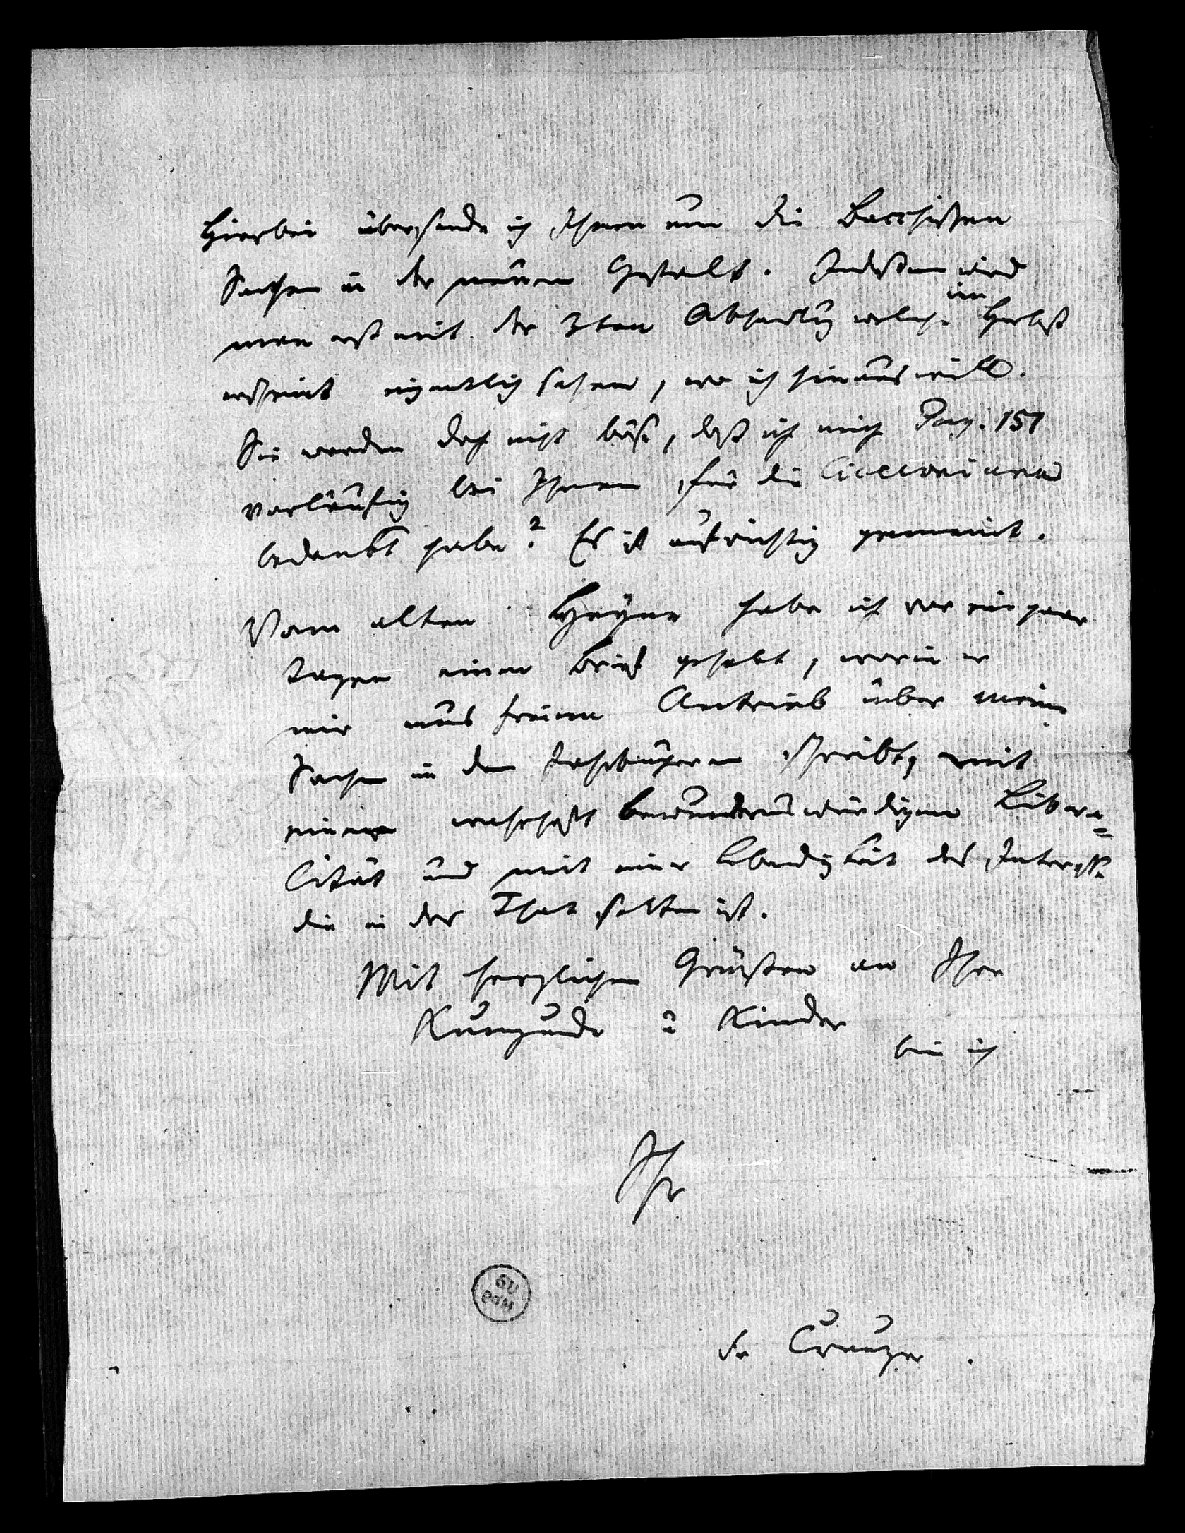 Hierbei übersende ich Ihnen nun die Bacchischen
Sachen in der neuen Gestalt. Indessen wird
man erst mit der 2ten Abhandlg welche im Herbst
erscheint eigentlich sehen, wo ich hinaus will.
Sie werden doch nicht bös, daß ich mich Pag. 151
vorläufig bei Ihnen für die Ciceroniana
bedankt habe? Es ist aufrichtig gemeint.
Vom alten Heyne habe ich vor ein paar
Tagen einen Brief gehabt, worin er
mir aus freiem Antrieb über meine
Sachen in den Jahrbüchern schreibt, mit
einer wahrhaft bewundernswürdigen Libera=
lität und mit einer Lebendigkeit des Interesse
die in der That selten ist.
Mit herzlichen Grüssen an Ihre
Kunigunde u Kinder
bin ich
Ihr
Fr Creuzer.